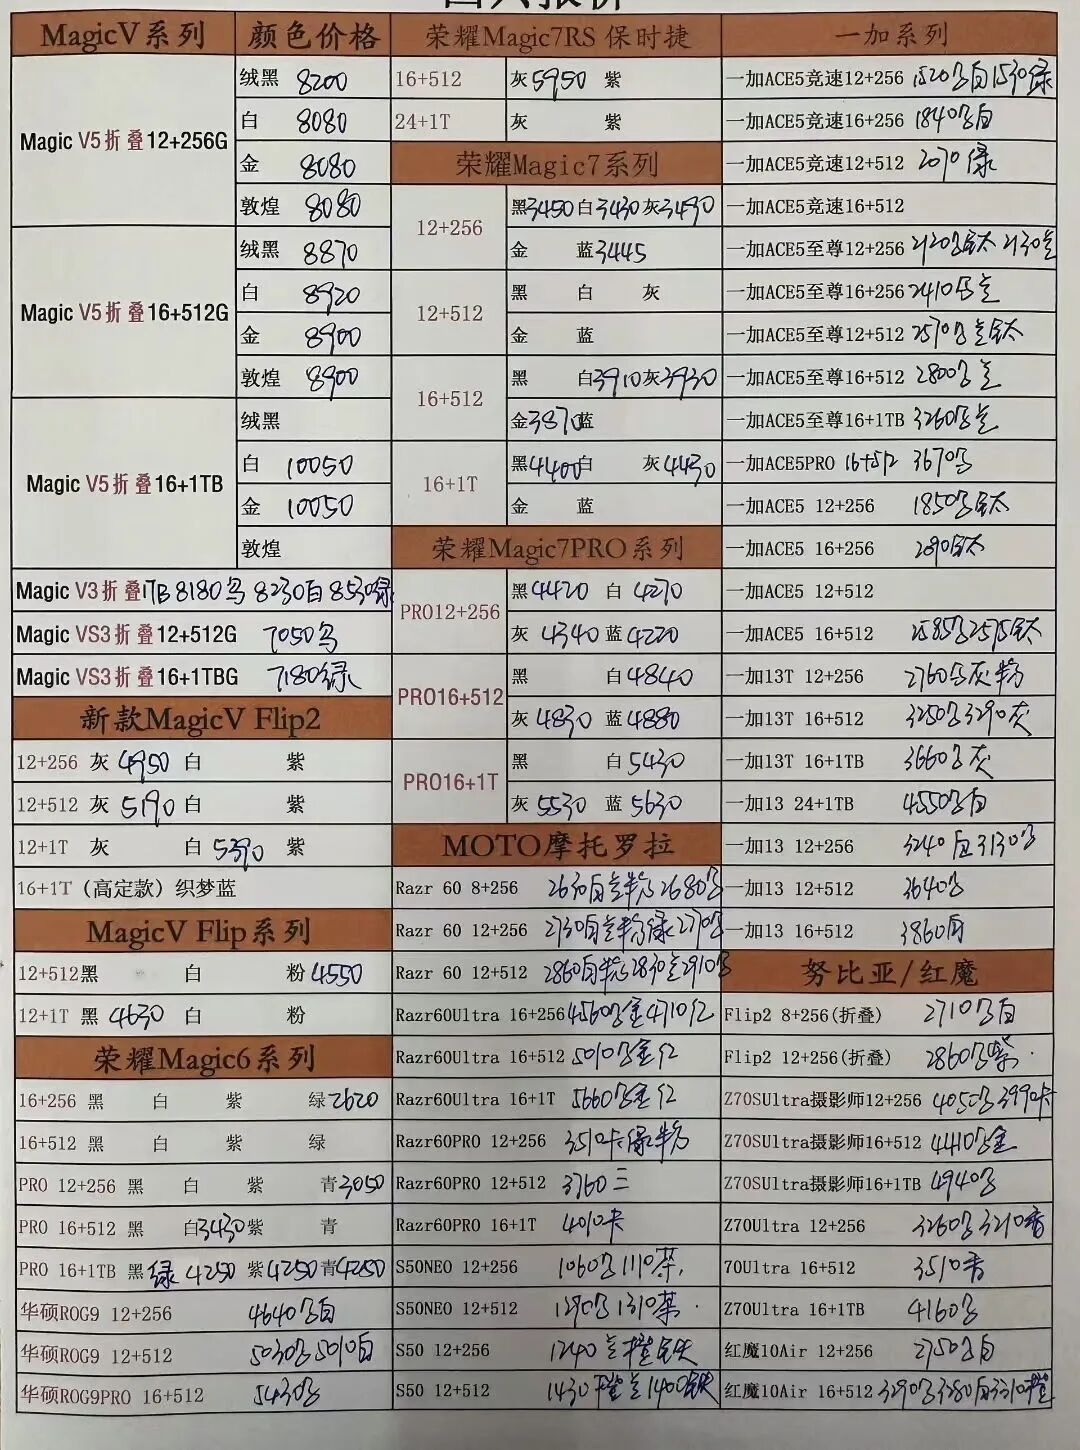 MagicV系列 颜色价格
Magic V5折叠12+256G
绒黑 8200
白 8080
金 8080
敦煌 8080
Magic V5折叠16+512G
绒黑 8870
白 8920
金 8900
敦煌 8900
Magic V5折叠16+1TB
绒黑
白 10050
金 10050
敦煌
Magic V3折叠1TB 8180乌 8230白 8530绿
Magic VS3折叠12+512G 7050乌
Magic VS3折叠16+1TBG 7180绿
新款MagicV Flip2
12+256 灰 4950 白 紫
12+512 灰 5190 白 紫
12+1T 灰 白 5390 紫
16+1T (高定款) 织梦蓝
MagicV Flip系列
12+512黑 白 粉4550
12+1T 黑 4630 白 粉
荣耀Magic6系列
16+256 黑 白 紫 绿2620
16+512 黑 白 紫 绿
PRO 12+256 黑 白 紫 青3050
PRO 16+512 黑 白3430紫 青
PRO 16+1TB 黑 绿 4250 紫4250青4250
华硕ROG9 12+256 4640乌白
华硕ROG9 12+512 5030乌5010白
华硕ROG9PRO 16+512 5430乌
荣耀Magic7RS 保时捷
16+512 灰5950 紫
24+1T 灰 紫
荣耀Magic7系列
12+256
黑3450白3430灰3490
金 蓝3445
12+512
黑 白 灰
金 蓝
16+512
黑 白3910灰3930
金3870蓝
16+1T
黑4400白 灰4430
金 蓝
荣耀Magic7PRO系列
PRO12+256
黑4420 白 4270
灰 4340 蓝4220
PRO16+512
黑 白4840
灰 4830 蓝4880
PRO16+1T
黑 白5430
灰 5530 蓝 5630
MOTO摩托罗拉
Razr 60 8+256 2630白兰粉 2680乌
Razr 60 12+256 2730白兰粉绿2770乌
Razr 60 12+512 2860白粉2830兰2910乌
Razr60Ultra 16+256 4560乌金4710红
Razr60Ultra 16+512 5010乌金红
Razr60Ultra 16+1T 5660乌金红
Razr60PRO 12+256 3510卡绿粉
Razr60PRO 12+512 3760三
Razr60PRO 16+1T 4010卡
S50NEO 12+256 1060乌1110茶
S50NEO 12+512 1290乌1310茶
S50 12+256 1240兰橙铁
S50 12+512 1430橙兰1400铁
一加系列
一加ACE5竞速12+256 1520乌白1530绿
一加ACE5竞速16+256 1840乌白
一加ACE5竞速12+512 2070绿
一加ACE5竞速16+512
一加ACE5至尊12+256 2120乌钛 2130兰
一加ACE5至尊16+256 2410乌兰
一加ACE5至尊12+512 2570乌兰钛
一加ACE5至尊16+512 2800乌兰
一加ACE5至尊16+1TB 3260乌兰
一加ACE5PRO 16+512 3670乌
一加ACE5 12+256 1850乌钛
一加ACE5 16+256 2090钛
一加ACE5 12+512
一加ACE5 16+512 2585乌2575钛
一加13T 12+256 2760乌灰粉
一加13T 16+512 3250乌3290灰
一加13T 16+1TB 3660乌灰
一加13 24+1TB 4550乌白
一加13 12+256 3240白3130乌
一加13 12+512 3640乌
一加13 16+512 3860白
努比亚/红魔
Flip2 8+256(折叠) 2710乌白
Flip2 12+256(折叠) 2860乌紫
Z70SUltra摄影师12+256 4050乌3990卡
Z70SUltra摄影师16+512 4410乌金
Z70SUltra摄影师16+1TB 4940乌
Z70Ultra 12+256 3260乌3210香
70Ultra 16+512 3510香
Z70Ultra 16+1TB 4160乌
红魔10Air 12+256 2750乌白
红魔10Air 16+512 3290乌3280白3310橙